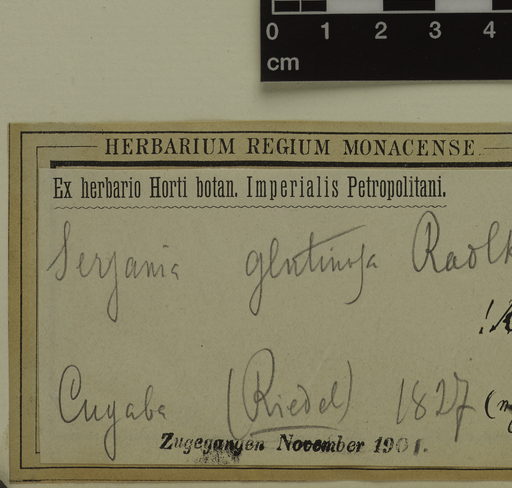 0 1 2 3 4
cm
HERBARIUM REGIUM MONACENSE
Ex herbario Horti botan. Imperialis Petropolitani.
Serjania glutinosa Radlk
Cuyaba (Riedel) 1827
Zugegangen November 1901.